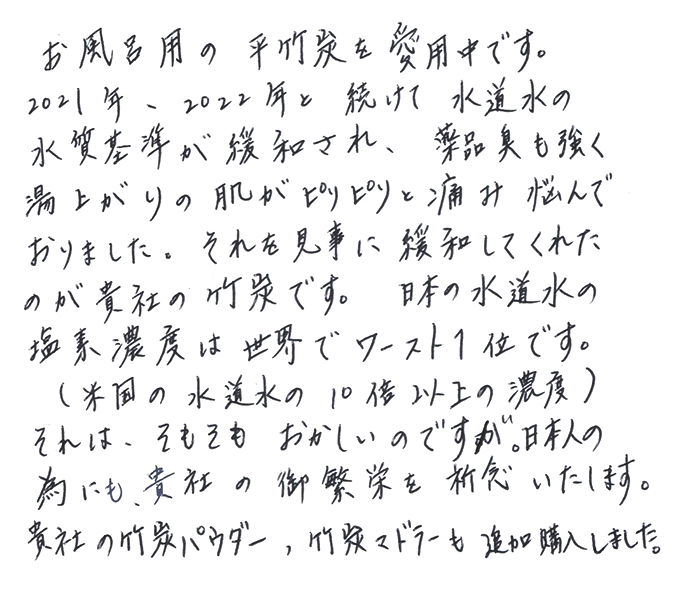 お風呂用の 平竹炭を 愛用中です。
2021年、2022年と 続けて 水道水の
水質基準が緩和され、 薬品臭も強く
湯上がりの肌がピリピリと痛み 悩んで
おりました。それを見事に緩和してくれた
のが貴社の竹炭です。 日本の水道水の
塩素濃度は世界でワースト1位です。
(米国の水道水の10倍以上の濃度)
それは、そもそも おかしいのですが。日本人の
為にも、貴社の御繁栄を祈念いたします。
貴社の竹炭パウダー、竹炭マドラーも追加購入しました。